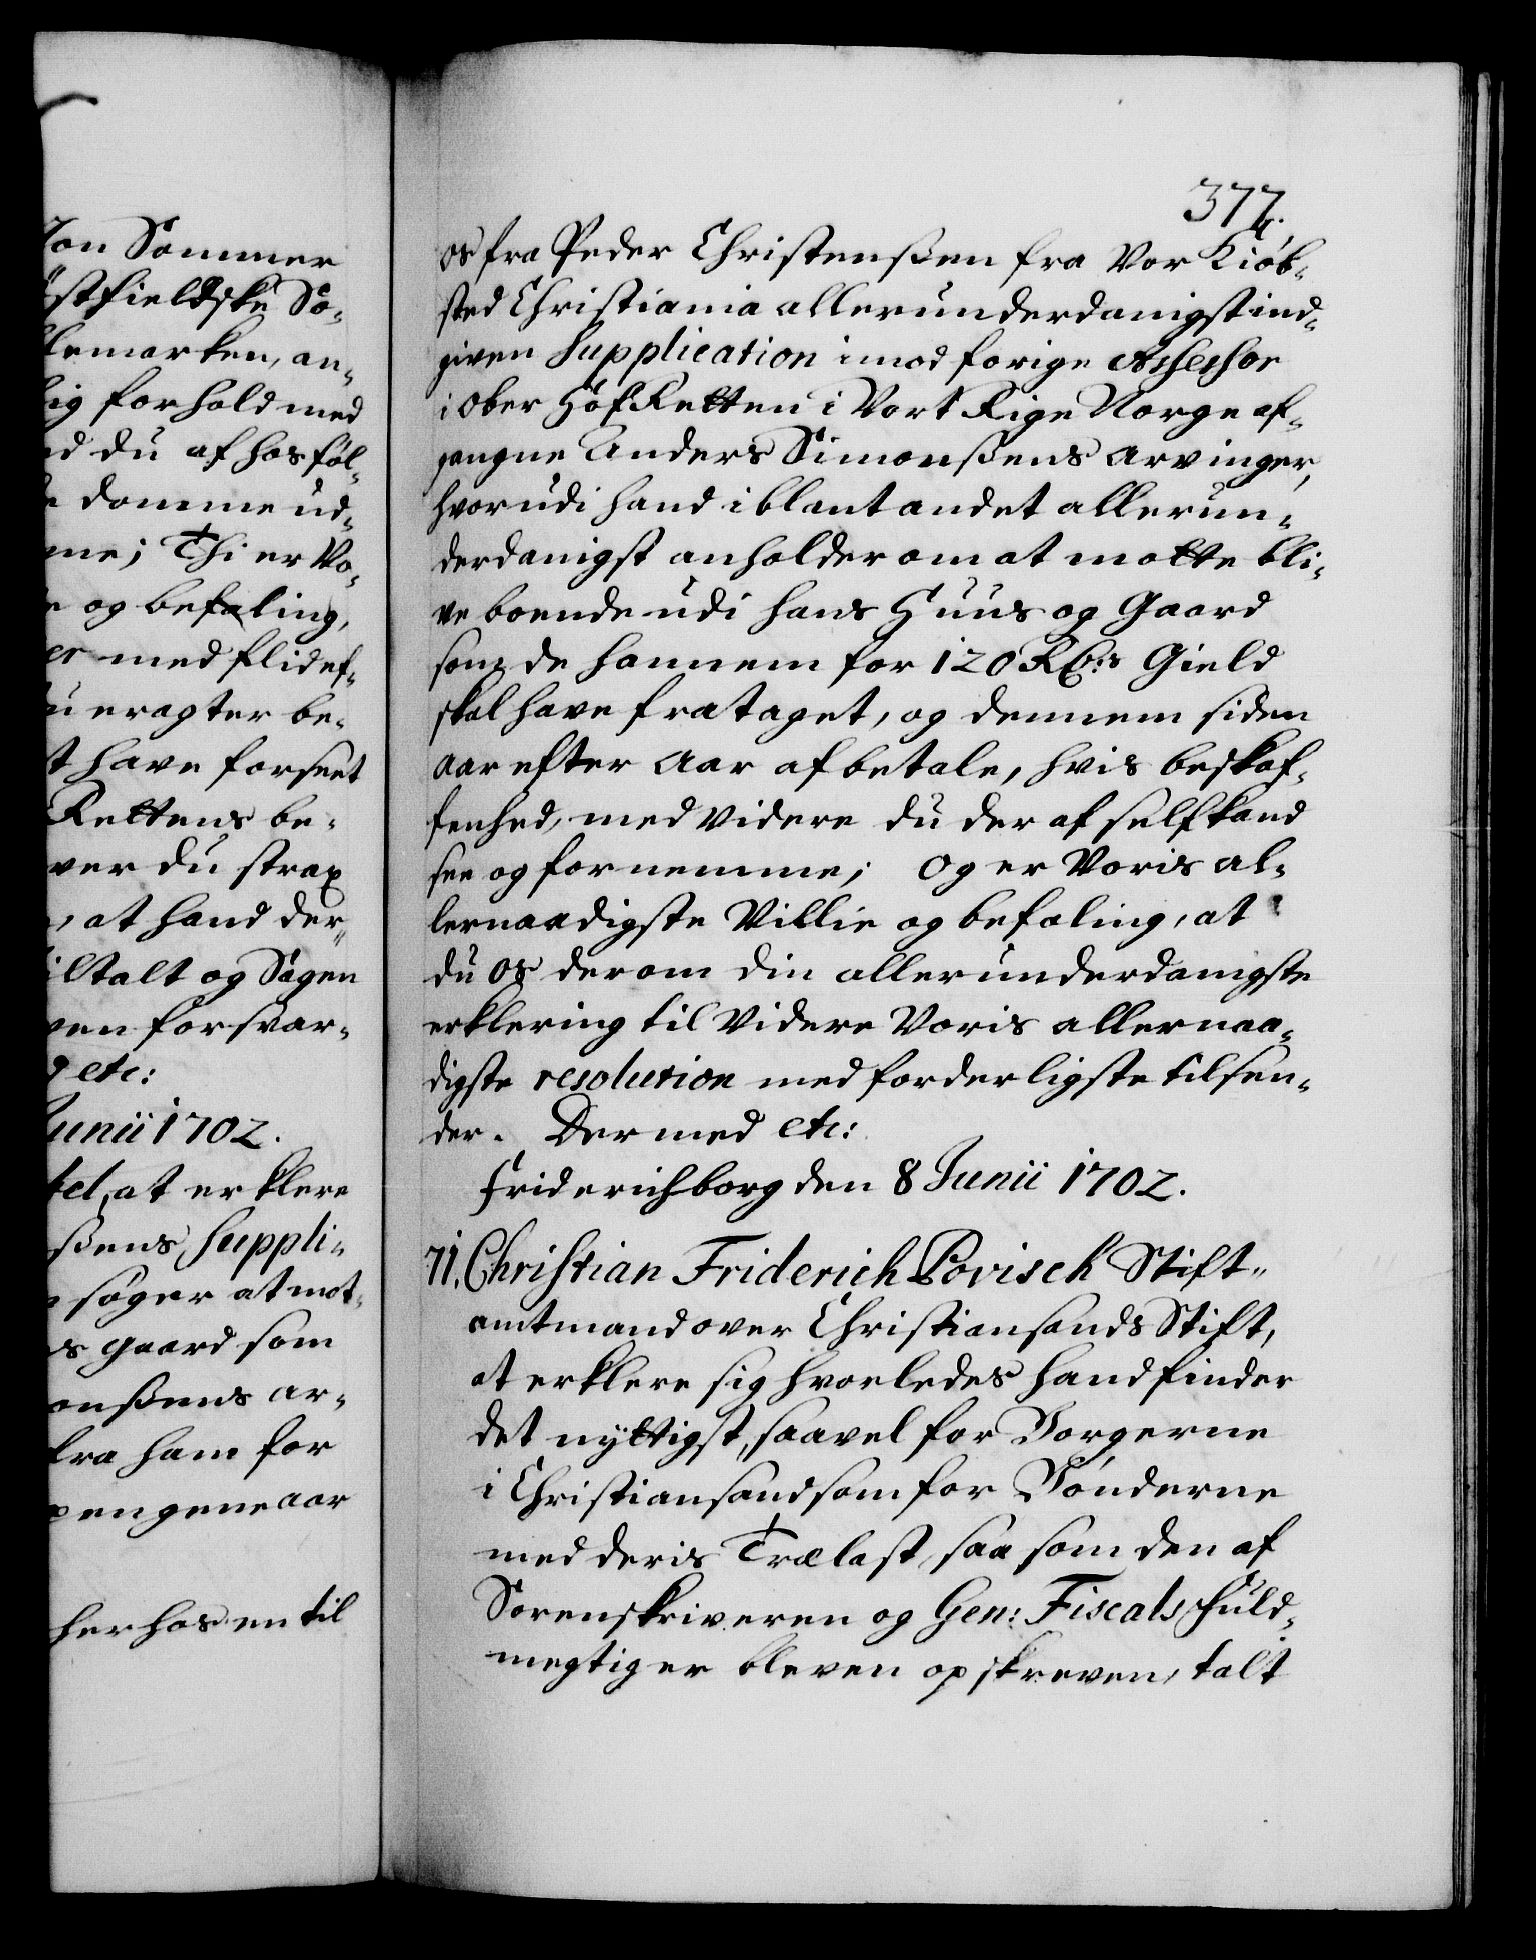 Jon Sommer
stfieldske So-
lemarken, an-
lig forhold med
d du af hosføl-
domme ud-
me; Thi er Vo-
og befaling,
er med flidef-
u eragter be-
t have forseet
Rettens be-
ver du strax
, at hand der-
iltalt og Sagen
en forsvar-
etc:
Junii 1702.
tel, at erklere
ßens, Suppli-
søger at mot-
s gaard som
onßens ar-
fra ham for
pengene aar
herhos en til
377.
os fra Peder Christenßen fra Vor Kiøb-
sted Christiania allerunderdanigst ind-
given Supplication imod forige Assessor
i Ober Hof Retten i Vort Rige Norge af-
gangne Anders Simonßens arvinger,
hvorudi hand iblant andet allerun-
derdanigst anholder om at motte bli-
ve boende udi hans Huus og Gaard
som de hannem for 120 Rd:rs Gield
skal have frataget, og dennem siden
aar efter aar afbetale, hvis beskaf-
fenhed, med videre du der af self kand
see og fornemme; Og er Voris al-
lernaadigste Villie og befaling, at
du os derom din allerunderdanigste
erklering til videre Voris allernaa-
digste resolution med forderligste tilsen-
der. Dermed etc:
Friderichborg den 8 Junii 1702.
71. Christian Friderich Povisch Stift-
amtmand over Christiansands Stift,
at erklere sig hvorledes hand finder
det nyttigst, saavel for Borgerne
i Christiansand som for Bønderne
med deris Trælast, saa som den af
Sorenskriveren og Gen: Fiscals fuld-
megtig er bleven opskreven, talt